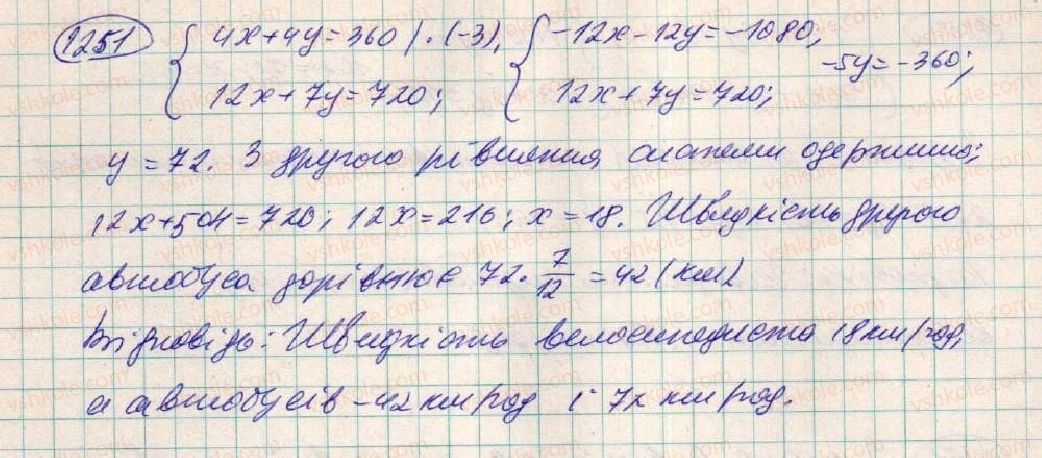 1251 { 4x+4y=360 | · (-3), { -12x-12y=-1080; -5y=-360;
12x+7y=720; 12x+7y=720;
y=72. З другого рівняння системи одержимо;
12x+504=720; 12x=216; x=18. Швидкість другого
автобуса дорівнює 72 · 7/12 = 42 (км)
Відповідь: Швидкість велосипедиста 18 км/год,
а автобусів - 42 км/год і 72 км/год.